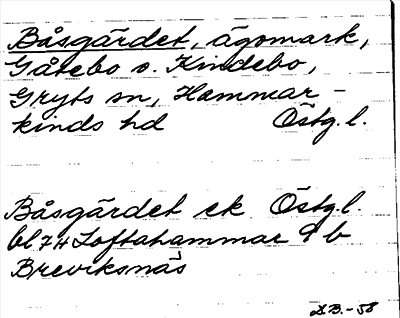 Båsgärdet, ägomark,
Gåtebo o. Kindebo,
Gryts sn, Hammar-
kinds hd Östg. l.
Båsgärdet ek Östg. l.
bl 74 Loftahammar 9 b
Breviksnäs
D.B. -58